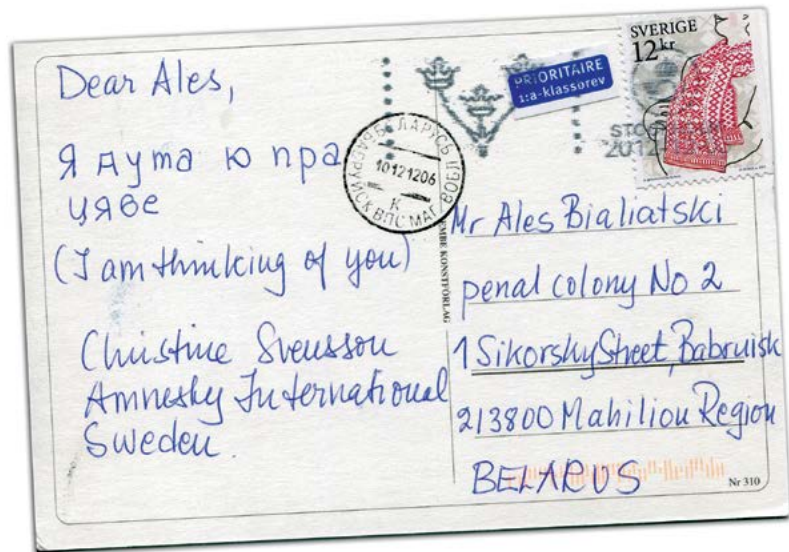 Dear Ales,
Я дума ю пра
цябе
(I am thinking of you)
Christine Svensson
Amnesty International
Sweden.
SVERIGE
12 kr
PRIORITAIRE
1:a-klassbrev
2012
БЕЛАРУСЬ
10121206
К
EMBE KONSTFÖRLAG
Mr Ales Bialiatski
penal colony No 2
1 Sikorsky Street, Babruisk
213800 Mahiliou Region
BELARUS
Nr 310